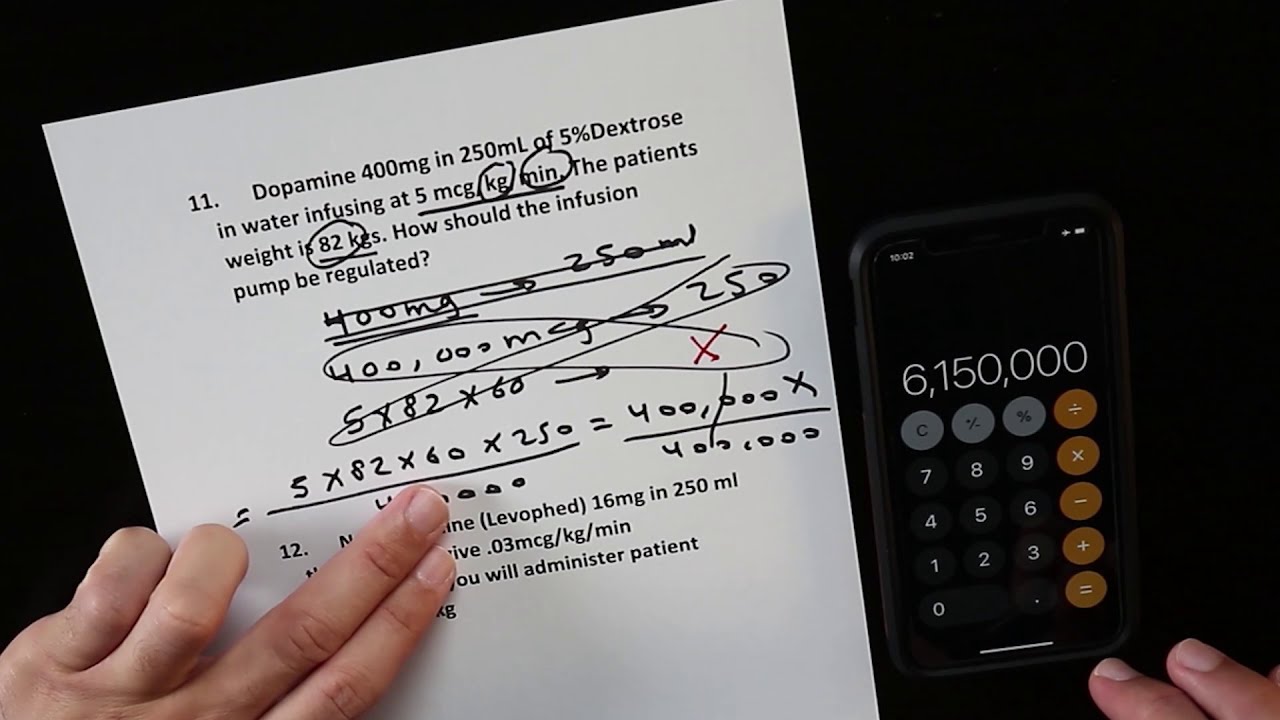 11. Dopamine 400mg in 250mL of 5%Dextrose
in water infusing at 5 mcg/kg/min. The patients
weight is 82 kgs. How should the infusion
pump be regulated?
400mg → 250ml
400,000mcg → 250
5×82×60 → X
5×82×60×250 = 400,000X
400,000
=
12. (Levophed) 16mg in 250 ml
.03mcg/kg/min
you will administer patient
kg
10:02
6,150,000
C +/- % ÷
7 8 9 ×
4 5 6 −
1 2 3 +
0 . =